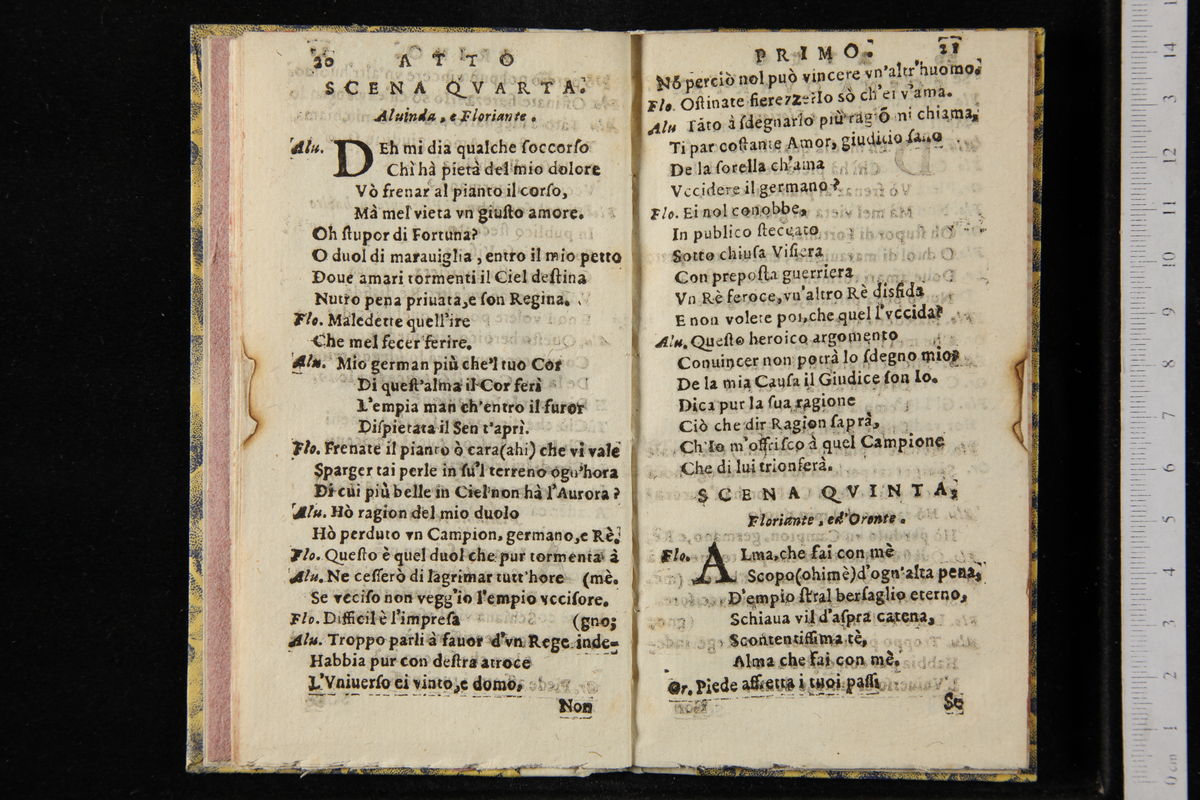 20 ATTO
SCENA QVARTA.
Aluinda, e Floriante.
Alu. DEh mi dia qualche ſoccorſo
Chì hà pietà del mio dolore
Vò frenar al pianto il corſo,
Mà mel vieta vn giuſto amore.
Oh ſtupor di Fortuna?
O duol di marauiglia, entro il mio petto
Doue amari tormenti il Ciel deſtina
Nutro pena priuata, e ſon Regina.
Flo. Maledette quell'ire
Che mel fecer ferire.
Alu. Mio german più che'l tuo Cor
Di queſt'alma il Cor ferì
L'empia man ch'entro il furor
Diſpietata il Sen t'aprì.
Flo. Frenate il pianto ò cara (ahi) che vi vale
Sparger tai perle in ſu'l terreno ogn'hora
Di cui più belle in Ciel non hà l'Aurora?
Alu. Hò ragion del mio duolo
Hò perduto vn Campion, germano, e Rè.
Flo. Queſto è quel duol che pur tormenta à
Alu. Ne ceſſerò di lagrimar tutt'hore (mè.
Se vcciſo non vegg'io l'empio vcciſore.
Flo. Difficil è l'impreſa (gno;
Alu. Troppo parli à fauor d'vn Rege inde-
Habbia pur con deſtra atroce
L'Vniuerſo ei vinto, e domo,
Non
PRIMO. 21
Nō perciò nol può vincere vn'altr'huomo.
Flo. Oſtinate fierezze: Io sò ch'ei v'ama.
Alu Tāto à ſdegnarlo più ragiō mi chiama,
Ti par coſtante Amor, giuditio ſano
De la ſorella ch'ama
Vccidere il germano?
Flo. Ei nol conobbe,
In publico ſteccato
Sotto chiuſa Viſiera
Con prepoſta guerriera
Vn Rè feroce, vn'altro Rè disfida
E non volete poi, che quel l'vccida?
Alu. Queſto heroico argomento
Conuincer non potrà lo ſdegno mio;
De la mia Cauſa il Giudice ſon Io.
Dica pur la ſua ragione
Ciò che dir Ragion ſaprà,
Ch'Io m'offriſco à quel Campione
Che di lui trionferà.
SCENA QVINTA.
Floriante, ed'Oronte.
Flo. ALma, che fai con mè
Scopo (ohimè) d'ogn'alta pena,
D'empio ſtral berſaglio eterno,
Schiaua vil d'aſpra catena,
Scontentiſſima tè,
Alma che fai con mè.
Or. Piede affretta i tuoi paſſi
Se